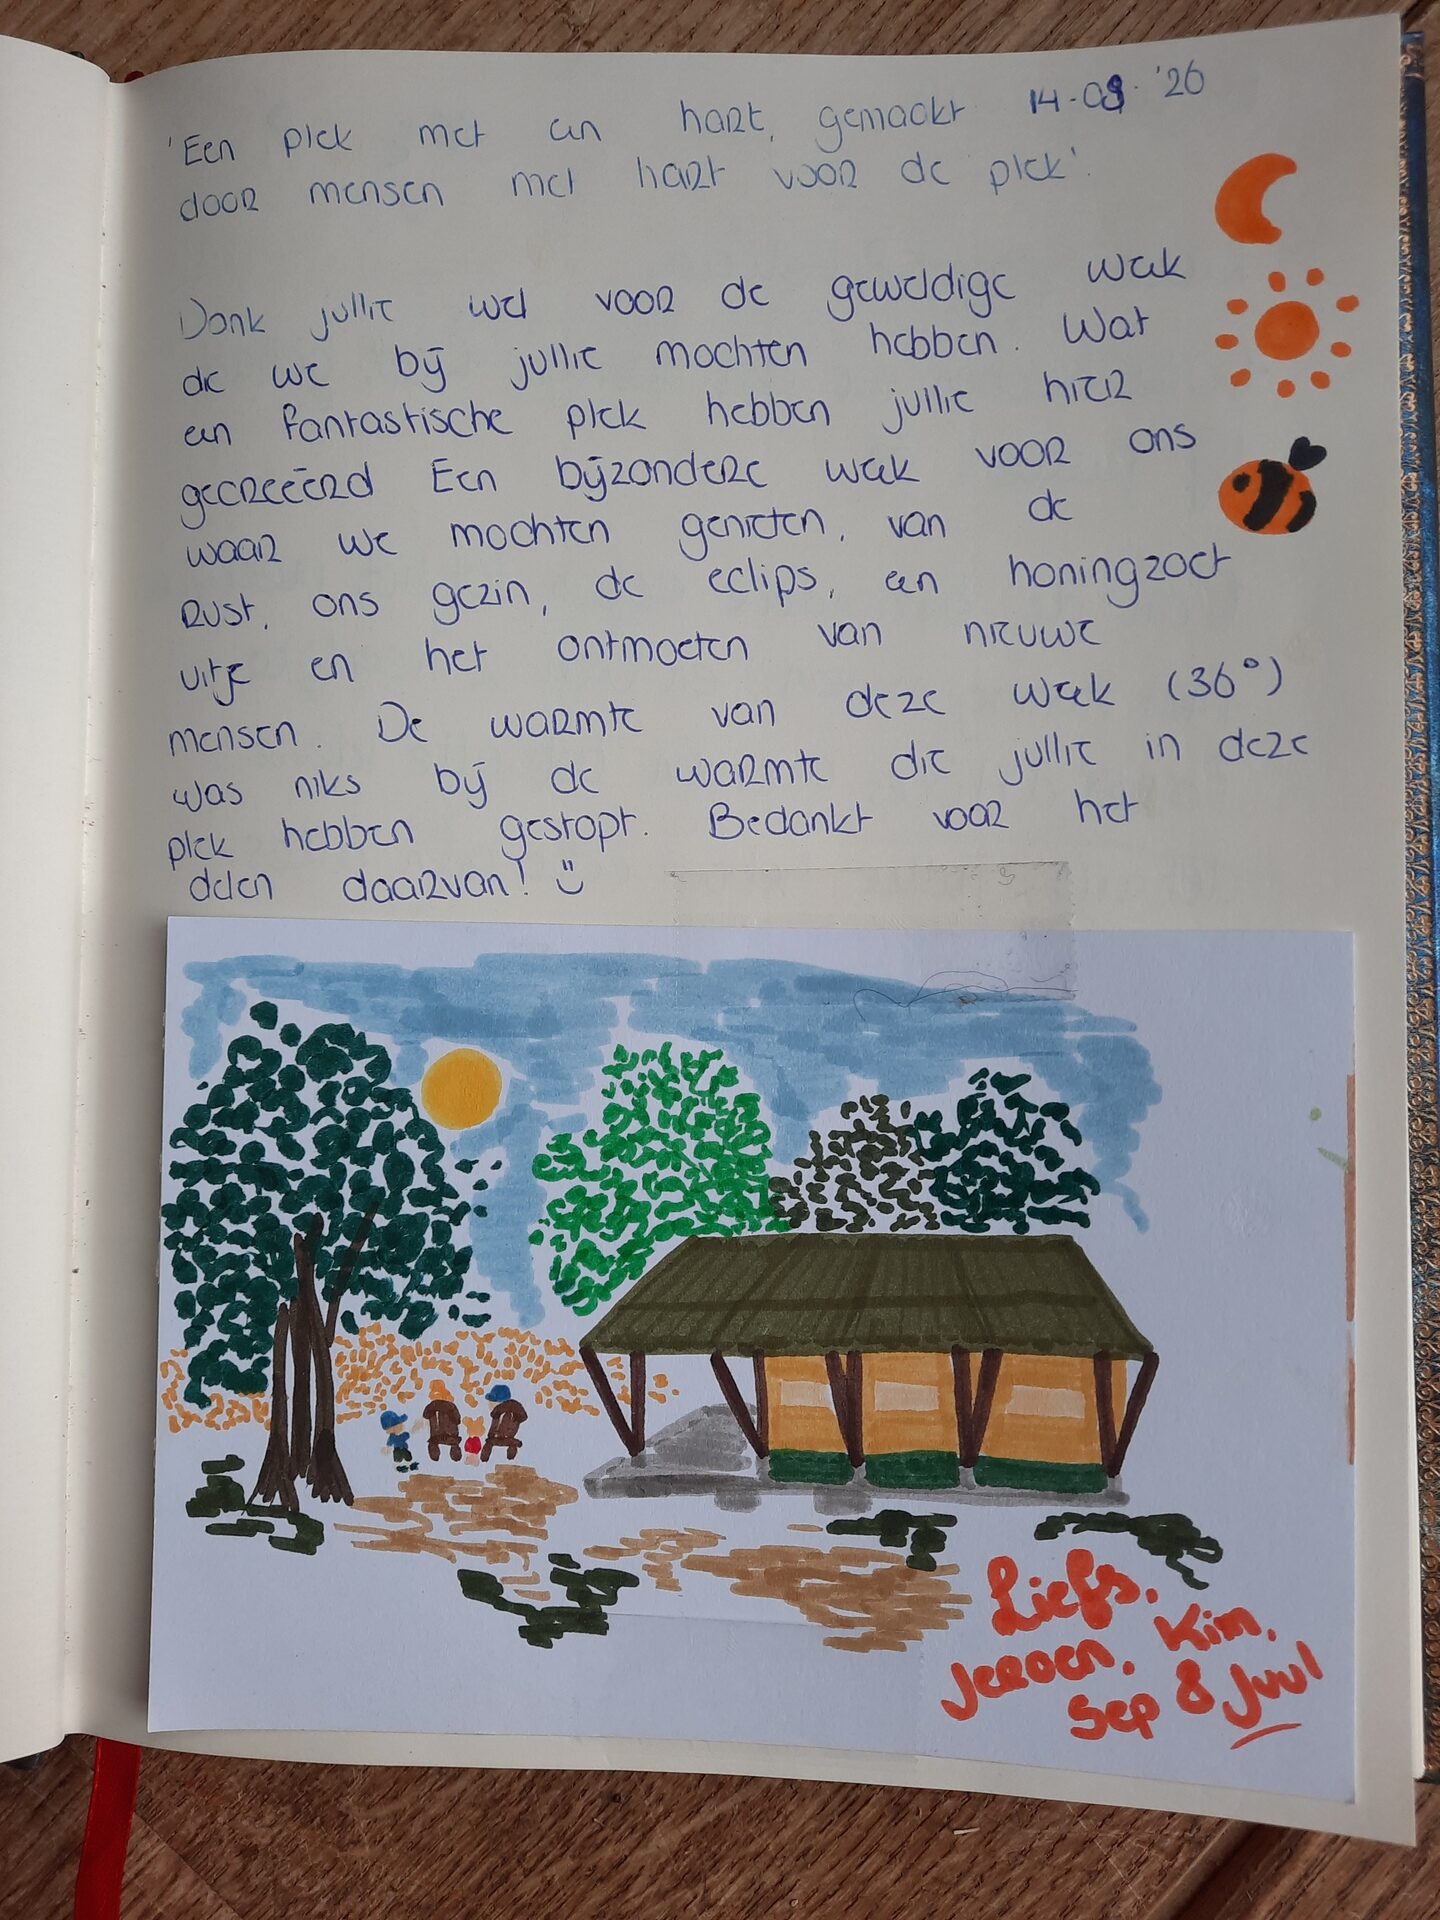 'Een plek met een hart, gemaakt 14-08-'26
door mensen met hart voor de plek'.
Dank jullie wel voor de geweldige week
die we bij jullie mochten hebben. Wat
een fantastische plek hebben jullie hier
gecreëerd Een bijzondere week voor ons
waar we mochten genieten, van de
rust, ons gezin, de eclips, een honingzoet
uitje en het ontmoeten van nieuwe
mensen. De warmte van deze week (36°)
was niks bij de warmte die jullie in deze
plek hebben gestopt. Bedankt voor het
delen daarvan! ü
Liefs,
Jeroen, Kim,
Sep & Juul